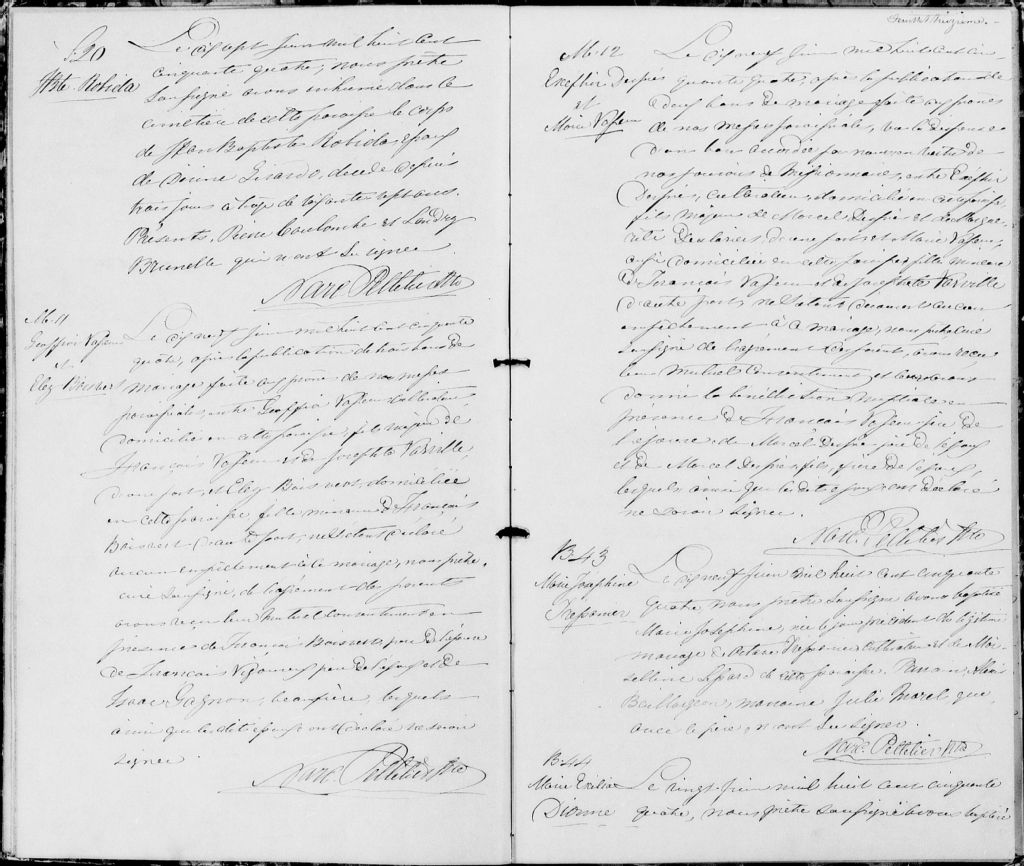 S. 20
Jbte. Robida
Le dix sept Juin mil huit cent
cinquante quatre, nous prêtre
soussigné avons inhumé dans le
cimetière de cette paroisse le corps
de Jean Baptiste Robida, époux
de Gerardo, décédé depuis
trois jours à l'age de soixante sept ans.
Présents, Pierre Coulombe et Landry
Brunelle qui n'ont su signer.
Narc. Pelletier Ptre
M. 11
Vasseur
et
Eliz. Boisvert
Le dix neuf Juin mil huit cent cinquante
quatre, après la publication de trois bans de
mariage faite au prône de nos messes
paroissiales, entre Vasseur cultivateur
domicilié en cette paroisse, fils majeur de
François Vasseur et de Josephte Vanville,
d'une part, et Eliz. Boisvert, domiciliée
en cette paroisse fille mineure de François
Boisvert d'autre part, ne s'étant déclaré
aucun empêchement à ce mariage, nous prêtre,
curé soussigné, de l'agrément des parents
avons reçu leur mutuel consentement en
présence de François Boisvert père de l'épouse
de François Vasseur père de l'époux et de
Isaac Gagnon, beaufrère, lesquels
ainsi que les dits époux ont déclaré ne savoir
signer.
Narc. Pelletier Ptre
Feuillet treizieme.
M. 12
Després
et
Marie Vasseur
Le dix neuf Juin mil huit cent cin
quante quatre, après la publication de
deux bans de mariage faite au prône
de nos messes paroissiales, vu la dispense
d'un ban accordée par nous en vertu de
nos pouvoirs de Missionnaire, entre
Després, cultivateur, domicilié en cette paroisse,
fils majeur de Marcel Després et de Margue-
rite Deslauriers, d'une part et Marie Vasseur,
aussi domiciliée en cette paroisse fille mineure
de François Vasseur et de Josephte Vanville
d'autre part, ne s'étant découvert aucun
empêchement à ce mariage, nous prêtre, curé
soussigné de l'agrément des parents, avons reçu
leur mutuel consentement et leur avons
donné la bénédiction nuptiale en
présence de François Vasseur père de
l'épouse, de Marcel Després père de l'époux
et de Marcel Després, fils, frère de l'époux,
lesquels ainsi que les dits époux ont déclaré
ne savoir signer.
Narc. Pelletier Ptre
B. 43
Marie Josephine
Le dix neuf Juin mil huit cent cinquante
quatre, nous prêtre soussigné avons baptisé
Marie Josephine, née le jour précédent du légitime
mariage de Octave cultivateur et de
de cette paroisse. Parrain,
Baillargeon, marraine Julie Morel qui
avec le père, n'ont su signer.
Narc. Pelletier Ptre
B. 44
Marie
Dionne
Le vingt Juin mil huit cent cinquante
quatre, nous prêtre soussigné avons baptisé